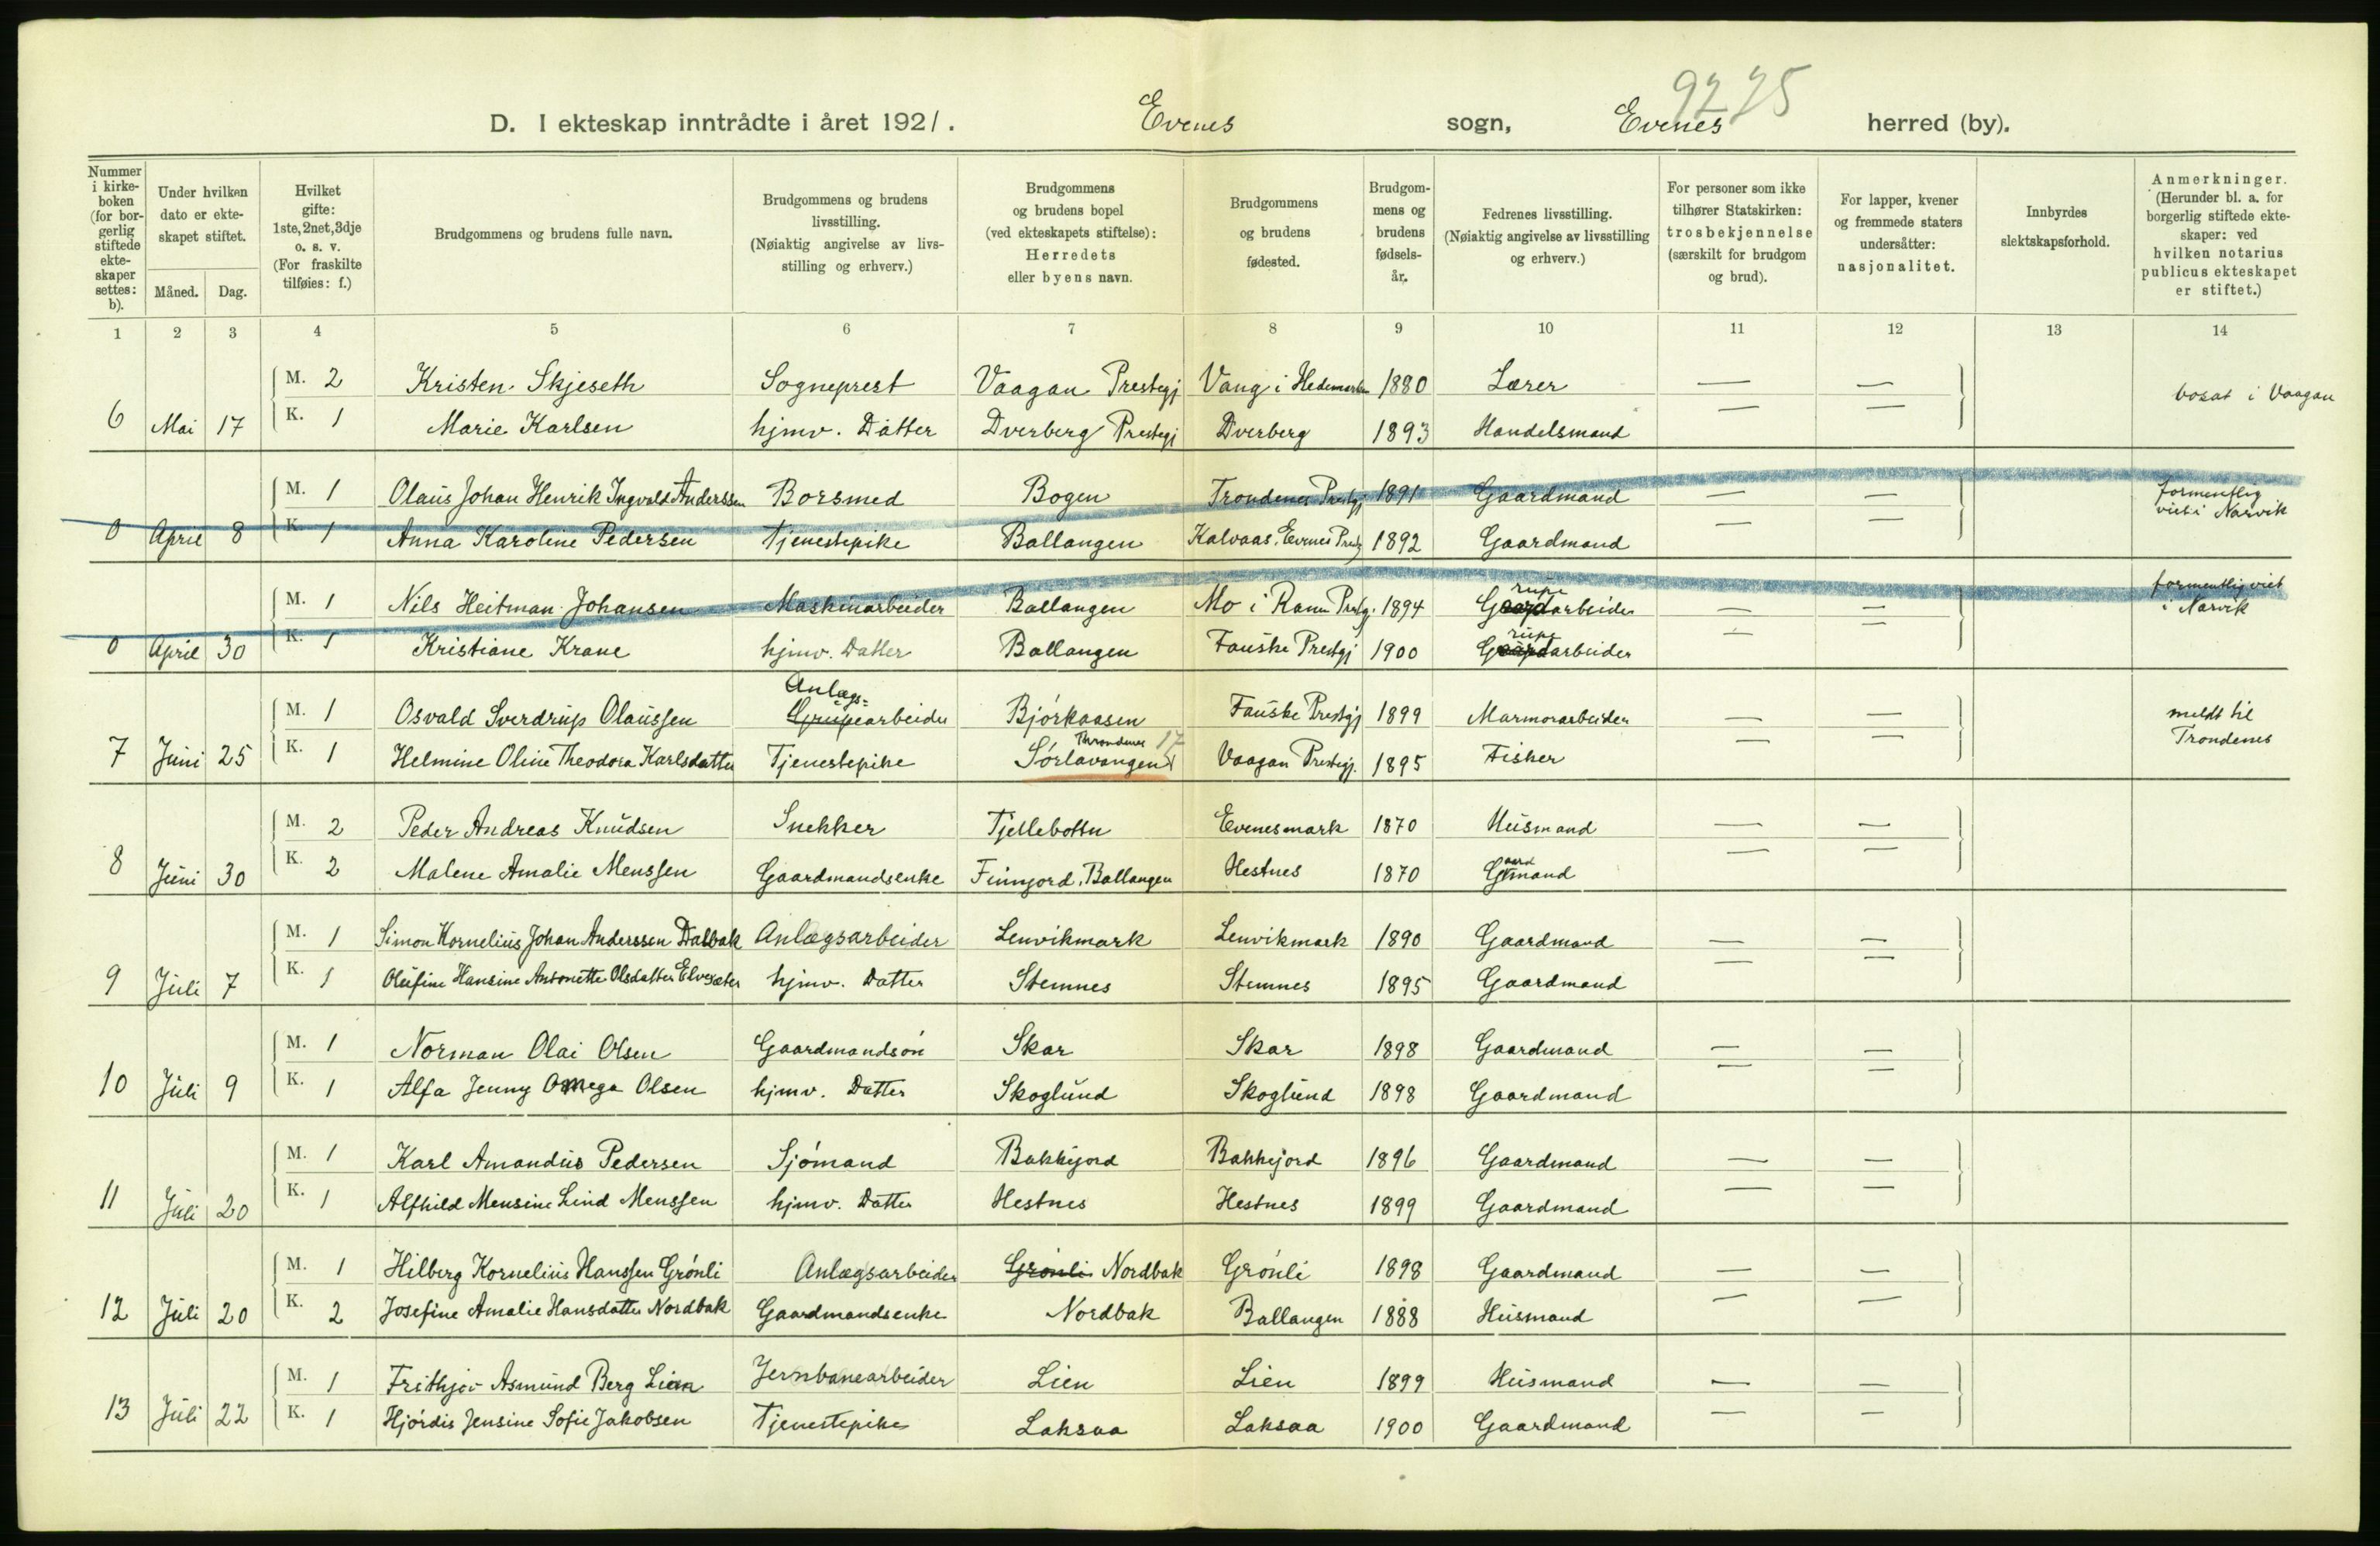 9275
D. I ekteskap inntrådte i året 1921. Evenes sogn, Evenes herred (by).
Nummer i kirke-boken (for bor-gerlig stiftede ekte-skaper settes: b).
Under hvilken dato er ekte-skapet stiftet.
Måned. Dag.
Hvilket gifte: 1ste, 2net, 3dje o. s. v. (For fraskilte tilføies: f.)
Brudgommens og brudens fulle navn.
Brudgommens og brudens livsstilling. (Nøiaktig angivelse av livs-stilling og erhverv.)
Brudgommens og brudens bopel (ved ekteskapets stiftelse): Herredets eller byens navn.
Brudgommens og brudens fødested.
Brudgom-mens og brudens fødsels-år.
Fedrenes livsstilling. (Nøiaktig angivelse av livsstilling og erhverv.)
For personer som ikke tilhører Statskirken: trosbekjennelse (særskilt for brudgom og brud).
For lapper, kvener og fremmede staters undersåtter: nasjonalitet.
Innbyrdes slektskapsforhold.
Anmerkninger. (Herunder bl. a. for borgerlig stiftede ekte-skaper: ved hvilken notarius publicus ekteskapet er stiftet.)
1 2 3 4 5 6 7 8 9 10 11 12 13 14
M. 2 Kristen Skjeseth Sogneprest Vaagan Prestegj Vang i Hedemarken 1880 Lærer — — bosat i Vaagan
6 Mai 17 K. 1 Marie Karlsen hjmv. Datter Dverberg Prestegj Dverberg 1893 Handelsmand — —
M. 1 Olaus Johan Henrik Ingvald Anderssen Borsmed Bogen Trondenes Prestgj 1891 Gaardmand — — formentlig viet i Narvik
0 April 8 K. 1 Anna Karoline Pedersen Tjenestepike Ballangen Kalvaas, Evenes Prestg 1892 Gaardmand — —
M. 1 Nils Heitman Johansen Maskinarbeider Ballangen Mo i Rana Prestg. 1894 Gaardarbeider rupe — — formentlig viet i Narvik
0 April 30 K. 1 Kristiane Krane hjmv. Datter Ballangen Fauske Prestgj 1900 Gaardarbeider rupe — —
M. 1 Osvald Sverdrup Olaussen Grupearbeider Anlægs- Bjørkaasen Fauske Prestgj 1899 Marmorarbeider — — meldt til Trondenes
7 Juni 25 K. 1 Helmine Oline Theodora Karlsdatter Tjenestepike Sørlavangen Throndenes 17 Vaagan Prestegj. 1895 Fisker — —
M. 2 Peder Andreas Knudsen Snekker Tjellebotn Evenesmark 1870 Husmand — —
8 Juni 30 K. 2 Malene Amalie Menssen Gaardmandsenke Finnjord, Ballangen Hestnes 1870 Gaardmand — —
M. 1 Simon Kornelius Johan Anderssen Dalbak Anlægsarbeider Lenvikmark Lenvikmark 1890 Gaardmand — —
9 Juli 7 K. 1 Olufine Hansine Antonette Olsdatter Elvesæter hjmv. Datter Stemnes Stemnes 1895 Gaardmand — —
M. 1 Norman Olai Olsen Gaardmandsøn Skar Skar 1898 Gaardmand — —
10 Juli 9 K. 1 Alfa Jenny Omega Olsen hjmv. Datter Skoglund Skoglund 1898 Gaardmand — —
M. 1 Karl Amandus Pedersen Sjømand Bakkejord Bakkejord 1896 Gaardmand — —
11 Juli 20 K. 1 Alfhild Mensine Lind Menssen hjmv. Datter Hestnes Hestnes 1899 Gaardmand — —
M. 1 Hilberg Kornelius Hanssen Grønli Anlægsarbeider Grønli Nordbak Grønli 1898 Gaardmand — —
12 Juli 20 K. 2 Josefine Amalie Hansdatter Nordbak Gaardmandsenke Nordbak Ballangen 1888 Husmand — —
M. 1 Frithjov Asmund Berg Lien Jernbanearbeider Lien Lien 1899 Husmand — —
13 Juli 22 K. 1 Hjørdis Jensine Sofie Jakobsen Tjenestepike Laksaa Laksaa 1900 Gaardmand — —